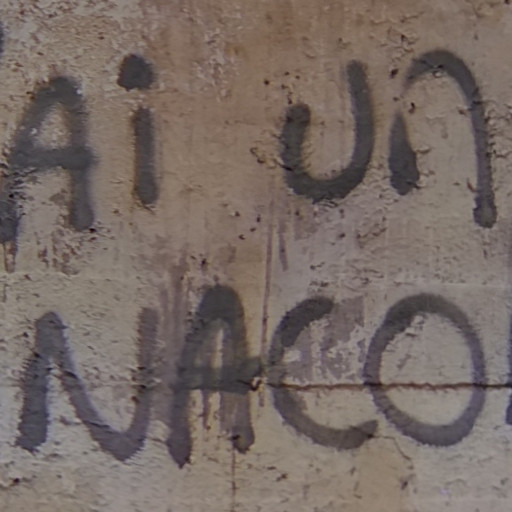 Ai un
NACO